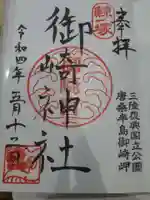 奉拝
三陸復興国立公園
唐桑半島御崎岬
御崎神社
令和四年五月十一日